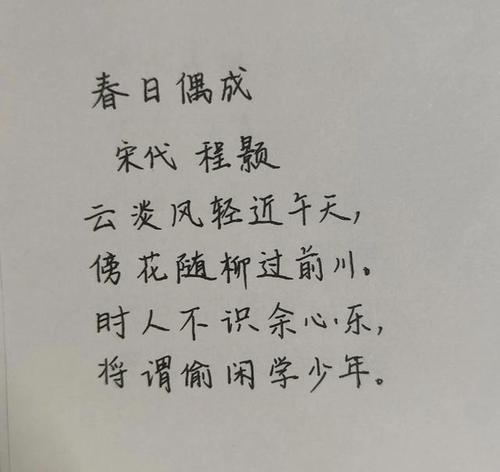 春日偶成
宋代 程颢
云淡风轻近午天，
傍花随柳过前川。
时人不识余心乐，
将谓偷闲学少年。